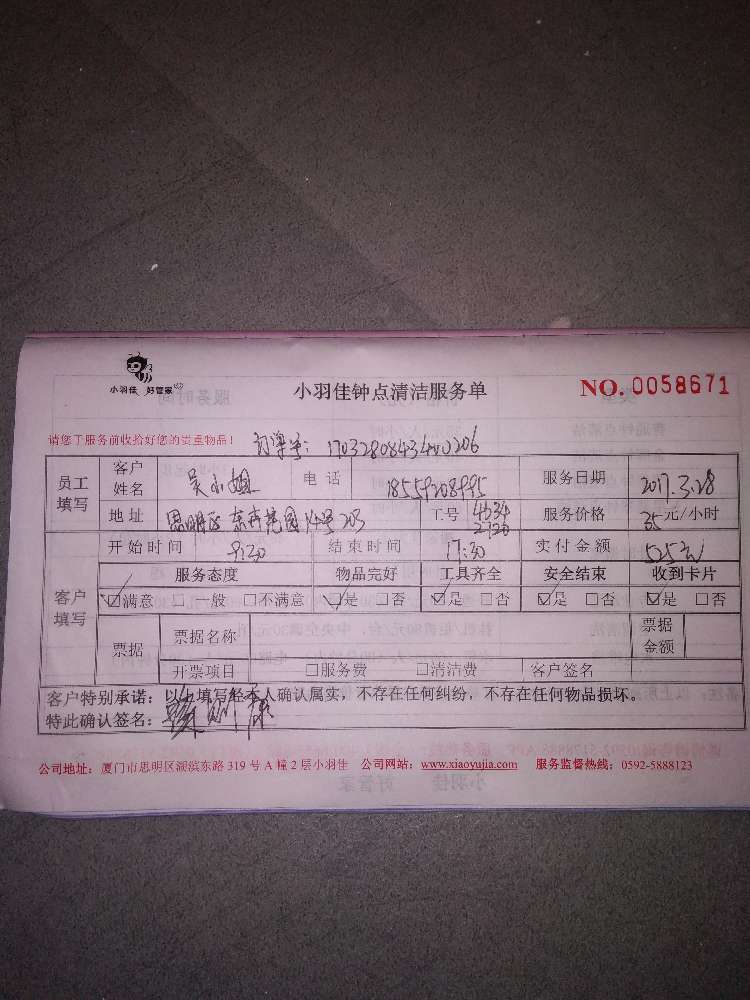 小羽佳 好管家
小羽佳钟点清洁服务单
NO. 0058671
请您于服务前收拾好您的贵重物品！
订单号：
员工填写 客户姓名 吴小姐 电话 18559208995 服务日期 2017.3.28
地址 思明区 花园 14号203 工号 4634 2720 服务价格 35元/小时
客户填写 开始时间 9:30 结束时间 17:30 实付金额 525元
服务态度 物品完好 工具齐全 安全结束 收到卡片
☑满意 □一般 □不满意 ☑是 □否 ☑是 □否 ☑是 □否 ☑是 □否
票据 票据名称 票据金额
开票项目 □服务费 □清洁费 客户签名
客户特别承诺：以上填写经本人确认属实，不存在任何纠纷，不存在任何物品损坏。
特此确认签名：
公司地址：厦门市思明区湖滨东路 319 号 A 幢 2 层小羽佳 公司网站：www.xiaoyujia.com 服务监督热线：0592-5888123